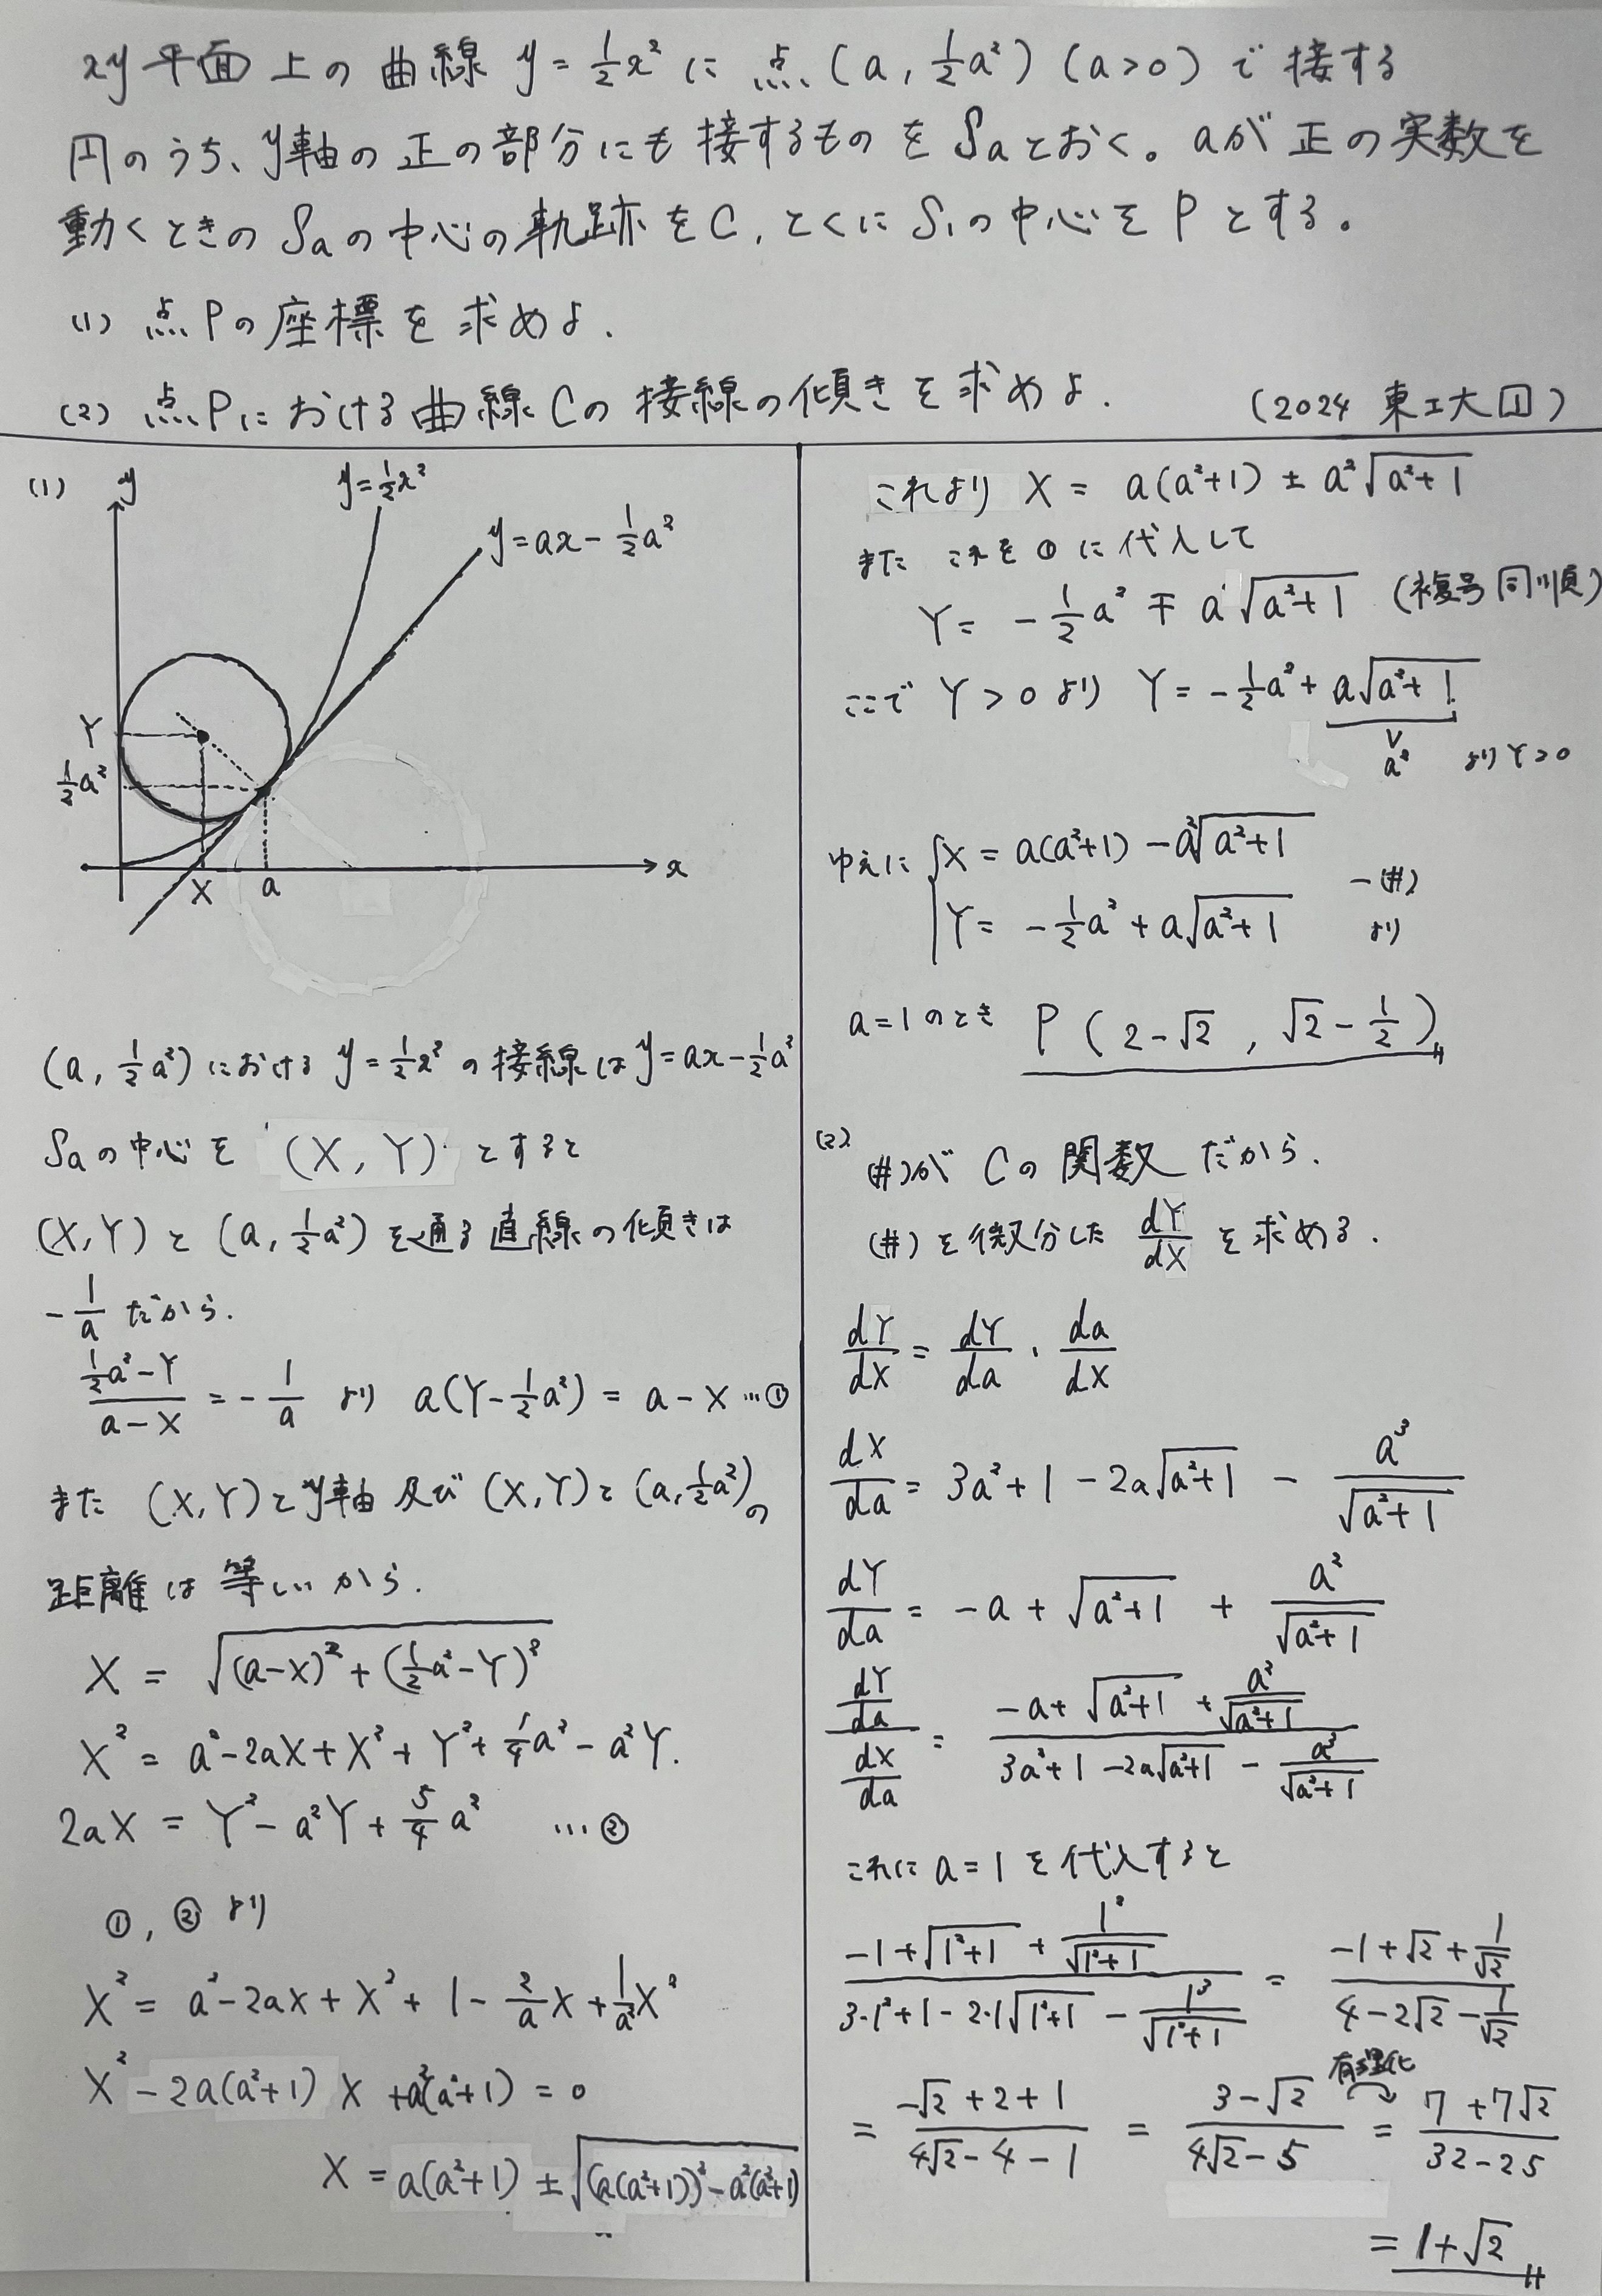 xy平面上の曲線 y=½x² に 点(a, ½a²) (a>0) で接する
円のうち、y軸の正の部分にも接するものをSaとおく。aが正の実数を
動くときのSaの中心の軌跡をC, とくにS₁の中心をPとする。
(1) 点Pの座標を求めよ.
(2) 点Pにおける曲線Cの接線の傾きを求めよ. (2024 東工大 ①)
(1)
y
y=½x²
y=ax-½a²
Y
½a²
X a x
(a, ½a²)における y=½x² の接線は y=ax-½a²
Saの中心を (X, Y) とすると
(X, Y)と(a, ½a²)を通る直線の傾きは
-1/a だから.
(½a²-Y)/(a-X) = -1/a より a(Y-½a²) = a-X …①
また (X, Y)とy軸 及び (X, Y)と(a, ½a²)の
距離は等しいから.
X = √((a-X)²+(½a²-Y)²)
X² = a²-2aX+X²+Y²+¼a²-a²Y.
2aX = Y²-a²Y+5/4 a² …②
①, ②より
X² = a²-2aX+X²+1-2/a X+1/a² X²
X²-2a(a²+1)X+a²(a²+1)=0
X = a(a²+1) ± √((a(a²+1))²-a²(a²+1))
これより X = a(a²+1) ± a²√(a²+1)
また これを①に代入して
Y = -½a² ∓ a√(a²+1) (複号同順)
ここで Y>0 より Y = -½a²+a√(a²+1)
∨
a² より Y>0
ゆえに { X = a(a²+1)-a²√(a²+1)
Y = -½a²+a√(a²+1) —(#)
より
a=1のとき P(2-√2, √2-½)〃
(2)
(#)が Cの関数だから.
(#)を微分した dY/dX を求める.
dY/dX = dY/da · da/dX
dX/da = 3a²+1-2a√(a²+1) - a³/√(a²+1)
dY/da = -a+√(a²+1) + a²/√(a²+1)
(dY/da)/(dX/da) = (-a+√(a²+1)+a²/√(a²+1))/(3a²+1-2a√(a²+1)-a³/√(a²+1))
これに a=1 を代入すると
(-1+√(1²+1)+1²/√(1²+1))/(3·1²+1-2·1√(1²+1)-1³/√(1²+1)) = (-1+√2+1/√2)/(4-2√2-1/√2)
有理化
= (-√2+2+1)/(4√2-4-1) = (3-√2)/(4√2-5) = (7+7√2)/(32-25)
= 1+√2〃